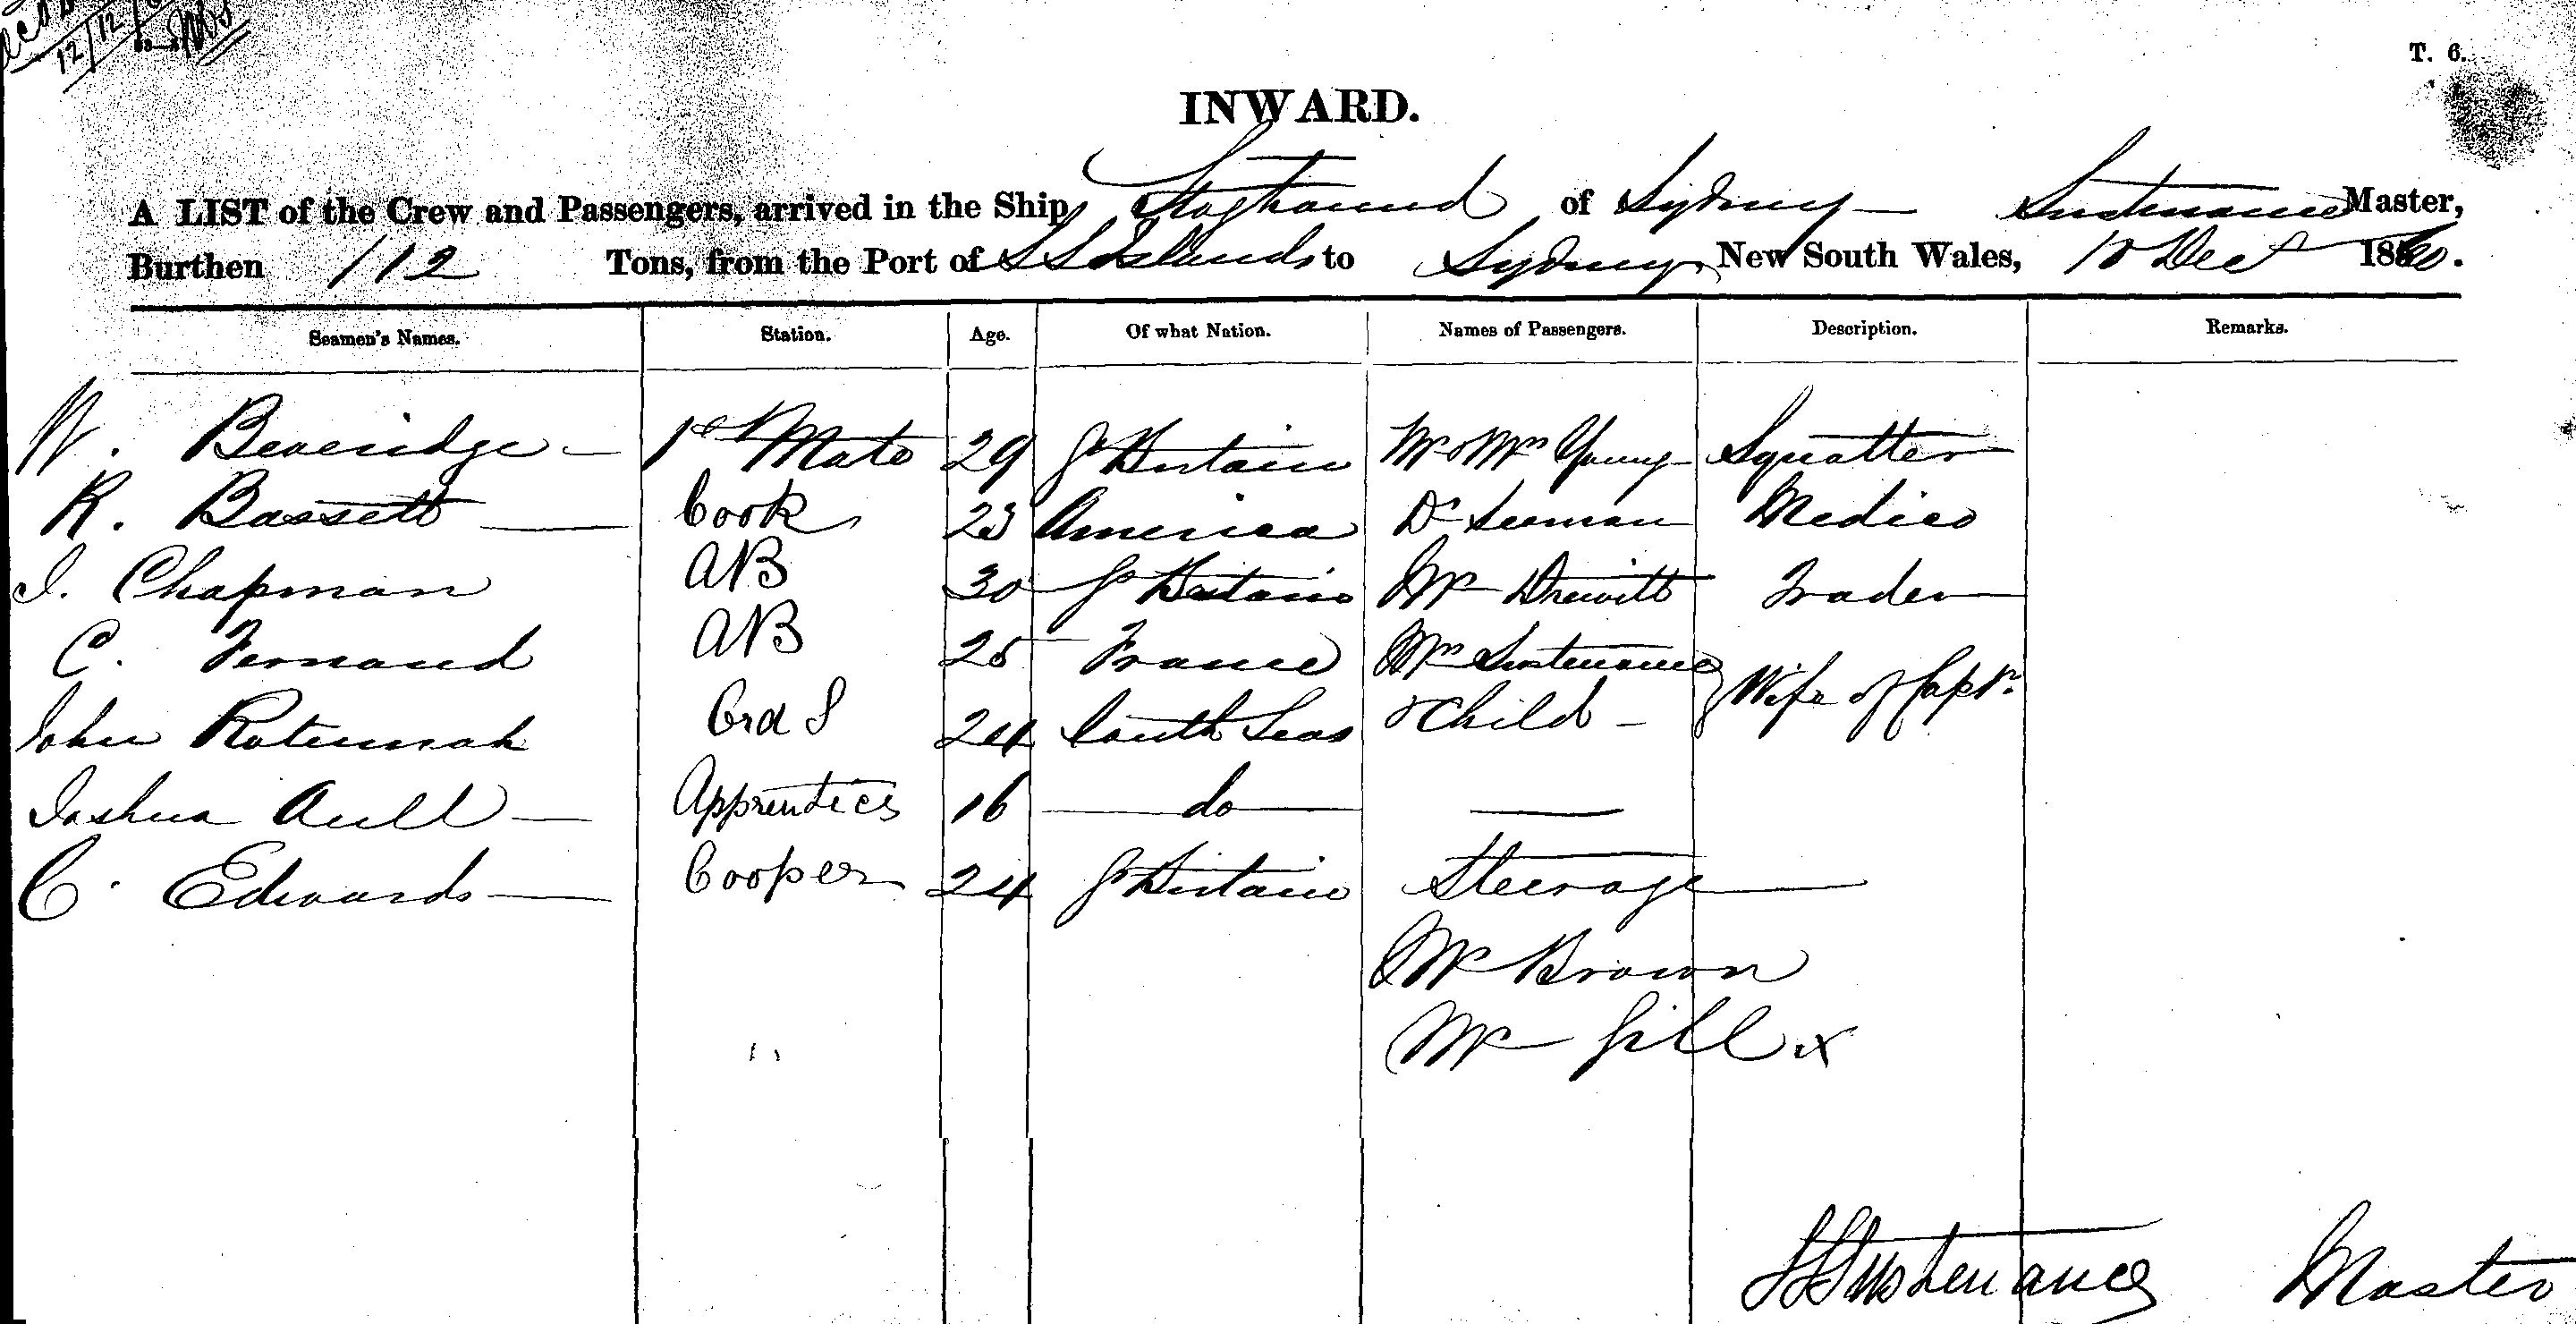 12/12/
T. 6.
INWARD.
A LIST of the Crew and Passengers, arrived in the Ship Staghound of Sydney Sustenance Master,
Burthen 112 Tons, from the Port of S S Islands to Sydney, New South Wales, 10 Dect 1860.
Seamen's Names. Station. Age. Of what Nation. Names of Passengers. Description. Remarks.
W. Beveridge 1st Mate 29 Gt Britain Mr & Mrs Young Squatter
R. Bassett Cook 23 America Dr Seeman Medico
I. Chapman AB 30 Gt Britain Mr Drewitt Trader
C. Fernand AB 25 France Mrs Sustenance
John Rotumah Ord S 24 South Seas & Child Wife of Captn.
Joshua Aull Apprentice 16 do
C. Edwards Cooper 24 Gt Britain Steerage
Mr Brown
Mr Gill x
Sustenance Master